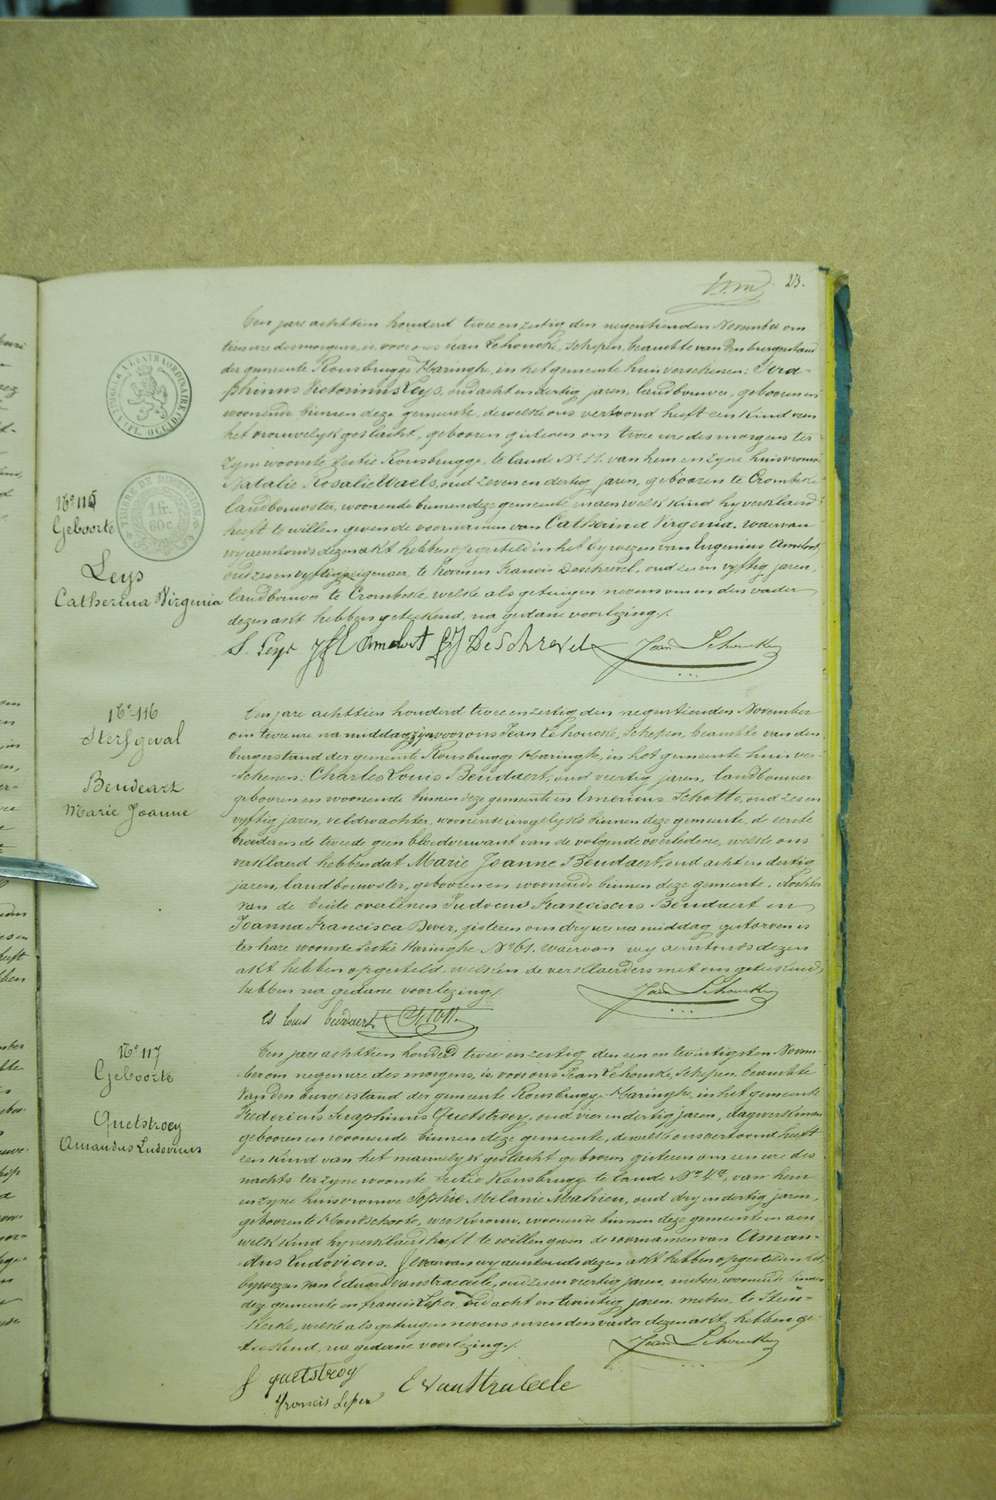 23.
TIMBRE EXTRAORDINAIRE
FL. OCCID.
1 fr.
60 c.
N° 115
Geboorte
Leys
Catharina Virginia
Een jare achttien honderd twee en zestig den negentienden November om
tien ure des morgens, is voor ons Jean Lehoucke, schepen, beambte van den burgerstand
der gemeente Rousbrugge-Haringhe, in het gemeente huis verschenen: Sera-
phinus Victorinus Leys, oud acht en dertig jaren, landbouwer, geboren en
woonende binnen deze gemeente, dewelke ons vertoond heeft een kind van
het vrouwelyk geslacht, geboren gisteren om twee ure des morgens ter
zyne woonste, sectie Rousbrugge, te lande N° 11. van hem en zyne huisvrouw
Natalie Rosalie Waels, oud zeven en dertig jaren, geboren te Crombeke
landbouwster, woonende binnen deze gemeente, en aen welk kind hy verklaerd
heeft te willen geven de voornamen van Catharina Virginia. Waervan
wy aenstonds dezen akt hebben opgesteld in het bywezen van Eugenius Amelot
oud zes en vyftig, eigenaer, te Rouseen Francis Deschrevel, oud en vyftig jaren,
landbouwer te Crombeke welke als getuigen nevens ons en den vader
dezen akt hebben geteekend, na gedane voorlezing./.
S. Leys Amelot FJ DeSchrevel Jean Lehoucke
N° 116
Sterfgeval
Beudaert
Marie Joanne
Een jare achttien honderd twee en zestig den negentienden November
om twee ure na middag zyn voor ons Jean Lehoucke, schepen, beambte van den
burgerstand der gemeente Rousbrugge-Haringhe, in het gemeente huis ver-
schenen: Charles Louis Beudaert, oud veertig jaren, landbouwer
geboren en woonende binnen deze gemeente en Emerius Schotte, oud zes en
vyftig jaren, veldwachter, woonende insgelyks binnen deze gemeente, de eerste
broeder en de tweede geen bloedverwant van de volgende overledene, welke ons
verklaerd hebben dat Marie Joanne Beudaert, oud acht en dertig
jaren, landbouwster, geboren en woonende binnen deze gemeente, dochter
van de beide overledenen Ludovicus Franciscus Beudaert en
Joanna Francisca Bever, gisteren om dry ure na middag gestorven is
ter hare woonste sectie Haringhe N° 61. waervan wy aenstonds dezen
akt hebben opgesteld welken de verklaerders met ons geteekend
hebben na gedane voorlezing./.
Ch Louis beudaert Schotte Jean Lehoucke
N° 117
Geboorte
Quetstroey
Amandus Ludovicus
Een jare achttien honderd twee en zestig den een en twintigsten Novem-
ber om negen ure des morgens, is voor ons Jean Lehoucke, schepen, beambte
van den burgerstand der gemeente Rousbrugge-Haringhe, in het gemeente
Fredericus Seraphinus Quetstroey, oud vier en dertig jaren, dagwerkman
geboren en woonende binnen deze gemeente, dewelke ons vertoond heeft
een kind van het mannelyk geslacht geboren gisteren om een ure des
nachts ter zyne woonste sectie Rousbrugge te lande N° 42, van hem
en zyne huisvrouwe Sophie Melanie Mahieu, oud dry en dertig jaren,
geboren te Hontschoote, werkvrouw, woonende binnen deze gemeente en aen
welk kind hy verklaerd heeft te willen geven de voornamen van Aman-
dus Ludovicus. Waervan wy aenstonds dezen akt hebben opgesteld in het
bywezen van Eduard Vanstraeceele, oud en veertig jaren, metser, woonende binnen
deze gemeente en Francis Leper, oud acht en twintig jaren metser, te Steen-
kerke, welke als getuigen nevens ons en den vader dezen akt, hebben ge-
teekend, na gedane voorlezing./.
Jean Lehoucke
F quetstroy
Francis Leper
E VanStraceele